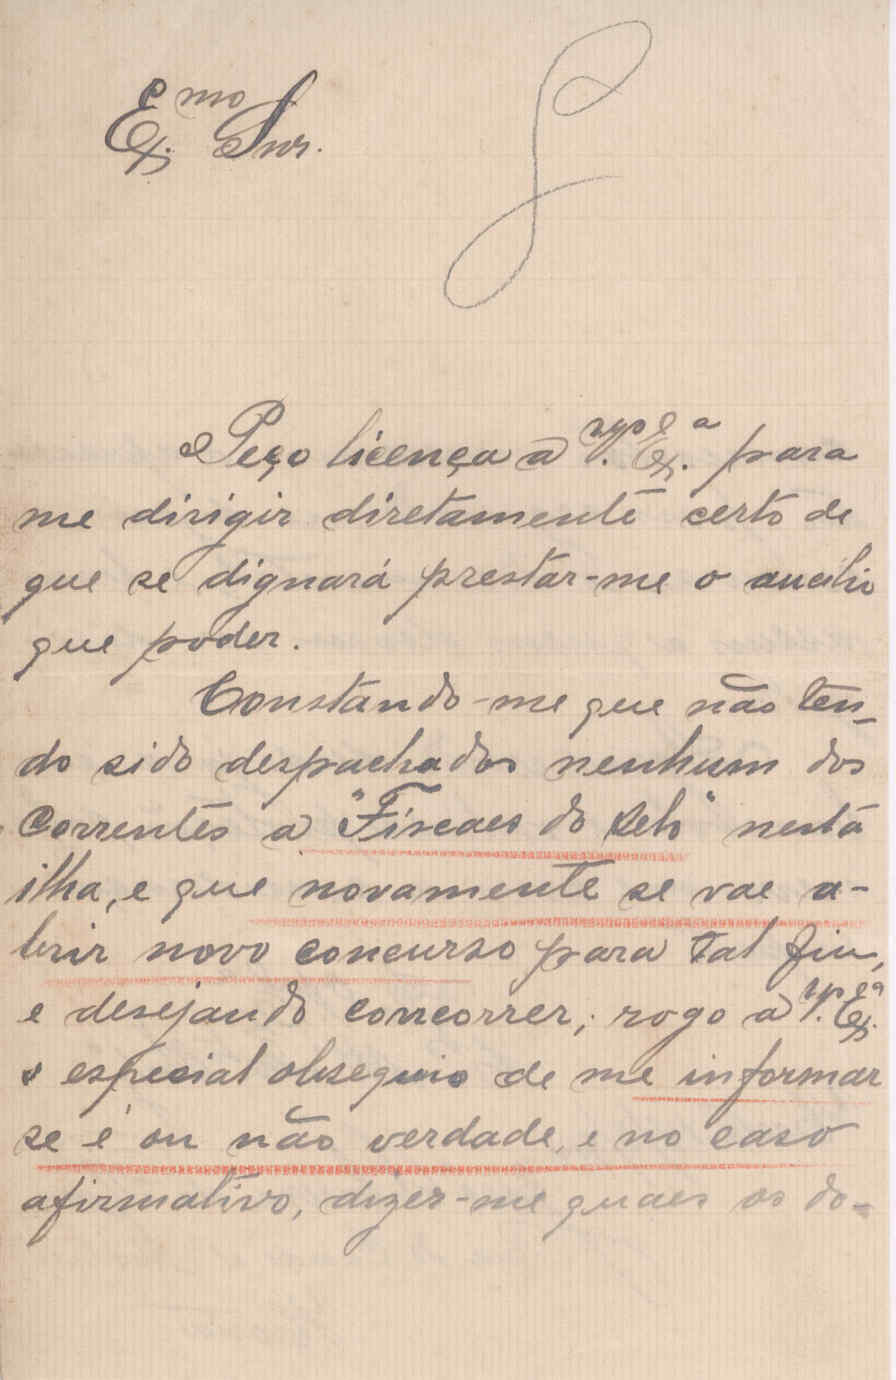 Ex.mo Snr.
Peço licença a V. Ex.a para
me dirigir diretamente certo de
que se dignará prestar-me o aucilio
que poder.
Constando-me que não ten-
do sido despachados nenhum dos
Correntes a "Fiscaes do Selo" nesta
ilha, e que novamente se vae a-
brir novo concurso para tal fim,
e desejando concorrer; rogo a V. Ex.a
o especial obsequio de me informar
se é ou não verdade, e no caso
afirmativo, dizer-me quaes os do-